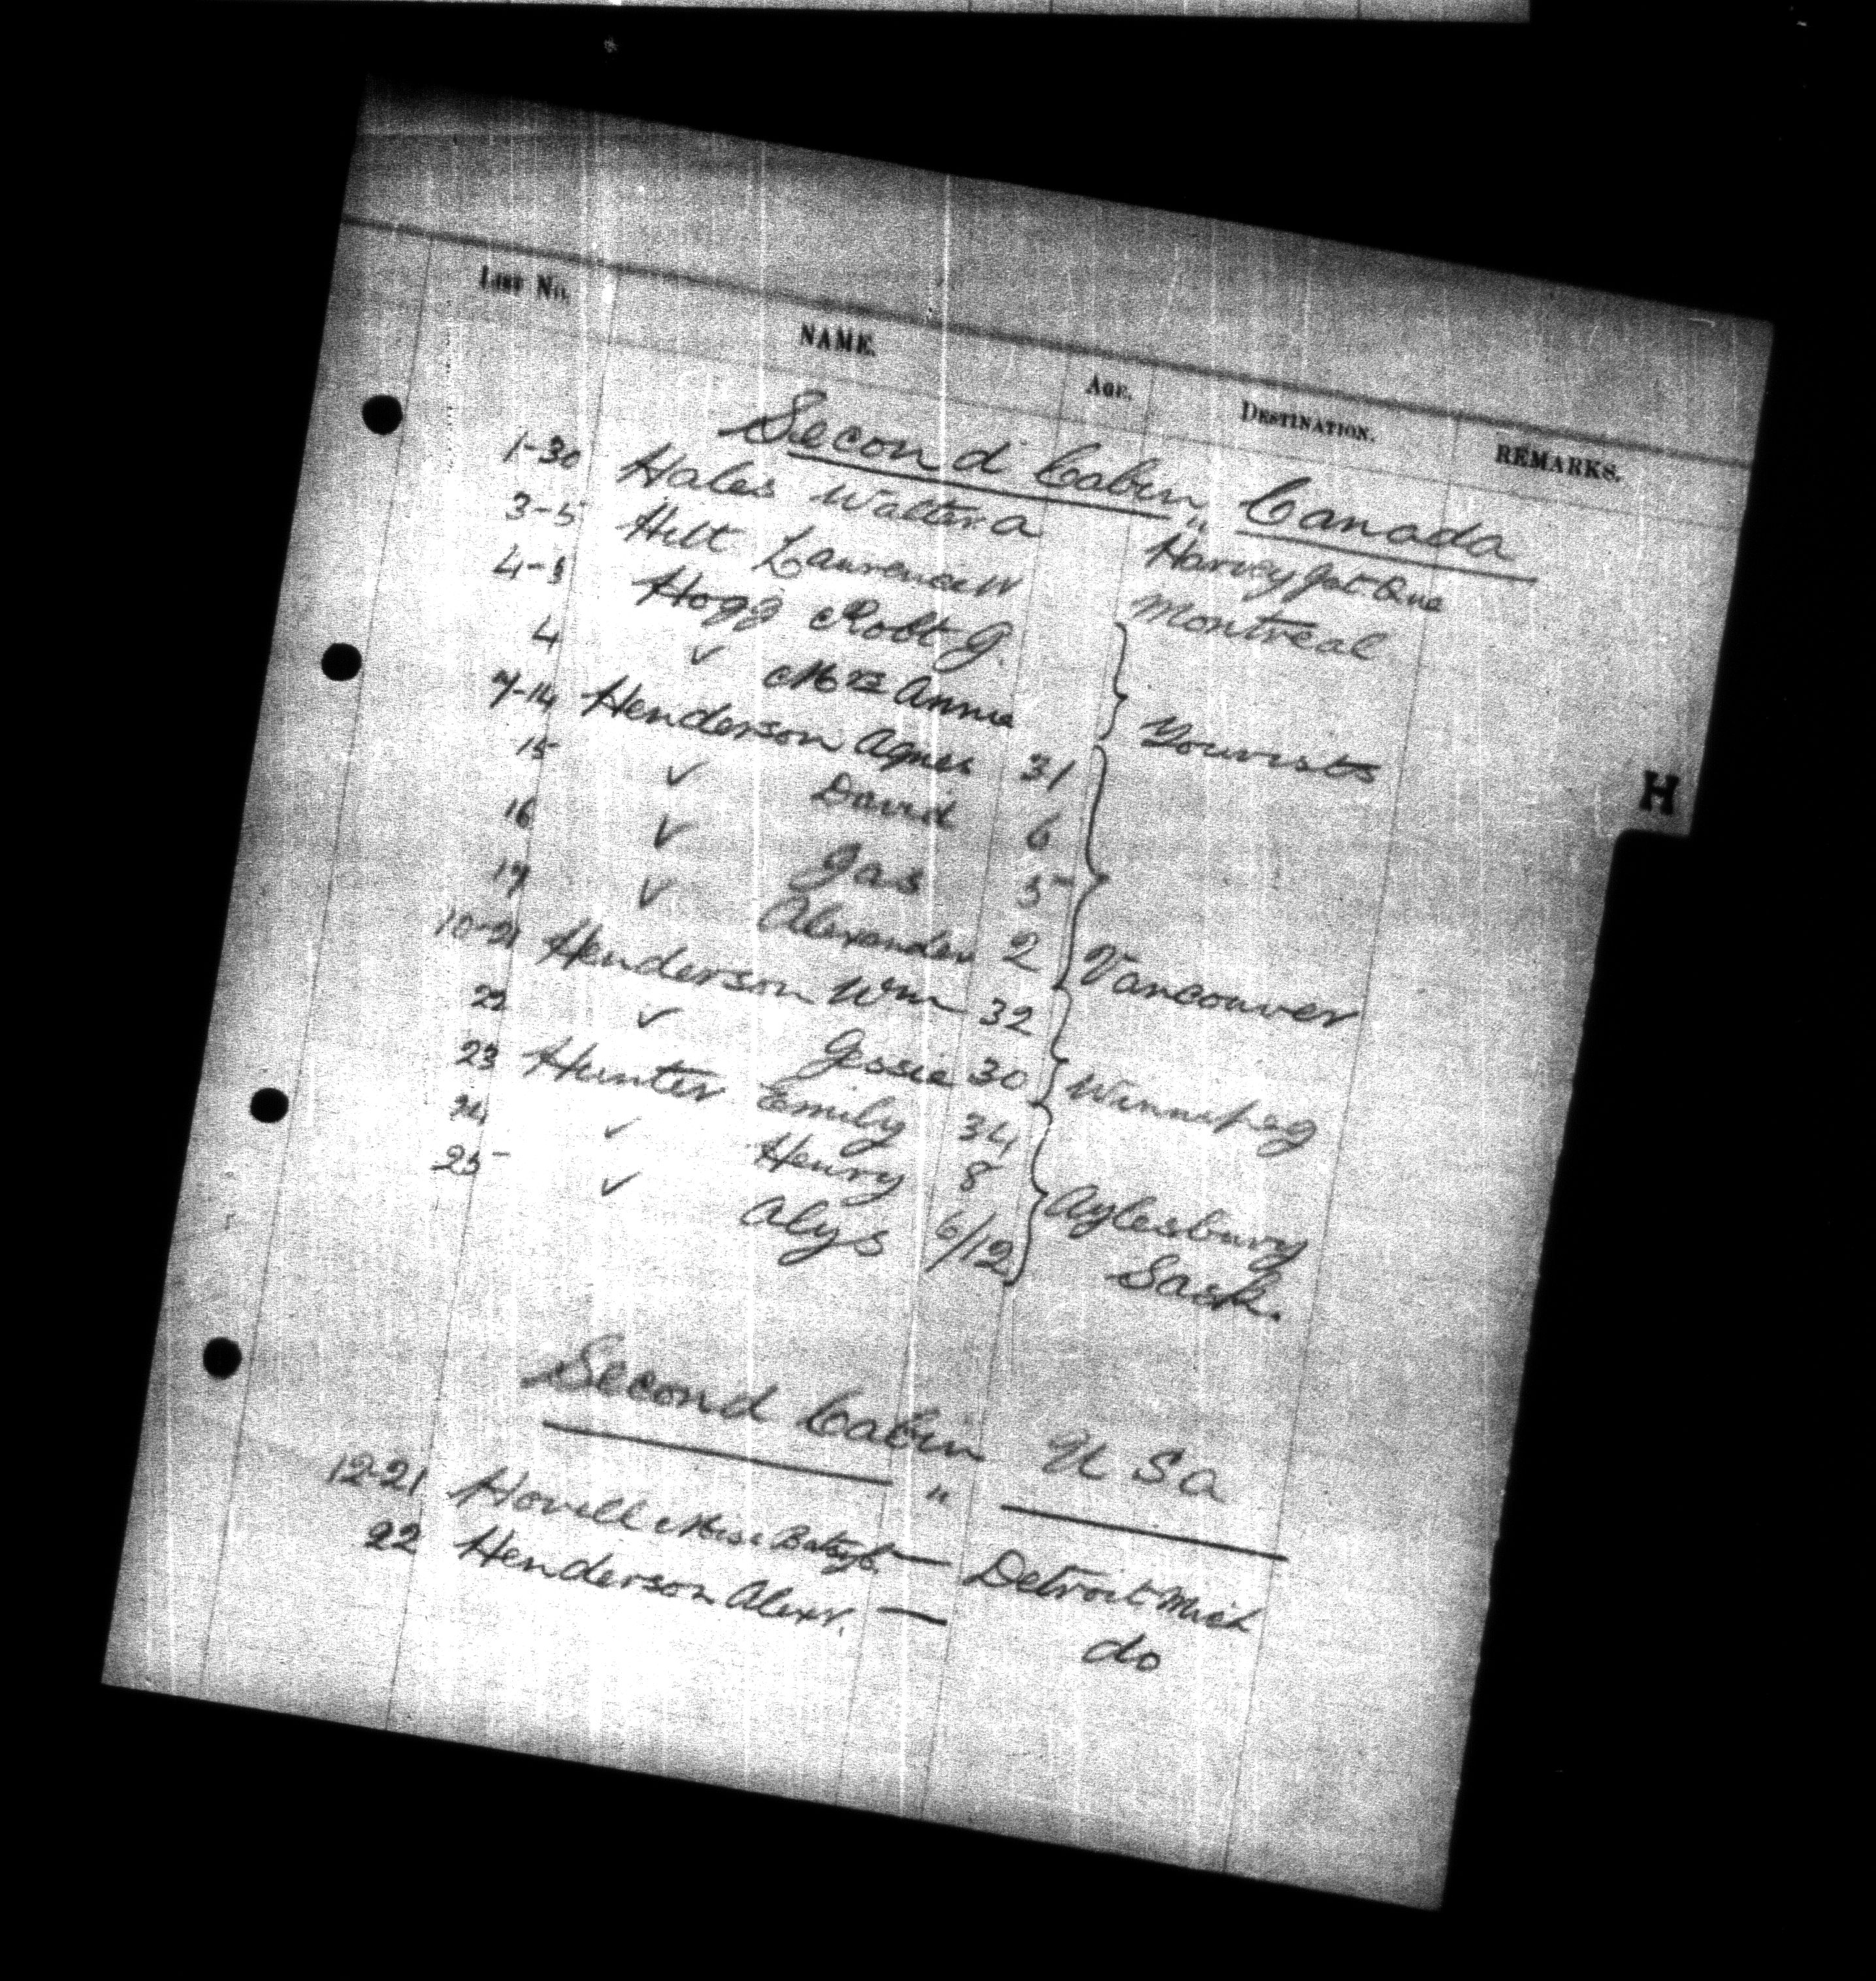 LIST No. NAME. AGE. DESTINATION. REMARKS.
Second Cabin " Canada
1-30 Hales Walter A Harvey Jct Que
3-5 Hilt Laurence W Montreal
4-3 Hogg Robt G.
4 ✓ Mrs Annie } Tourists
7-14 Henderson Agnes 31
15 ✓ David 6
16 ✓ Jas 5
17 ✓ Alexander 2 } Vancouver
10-21 Henderson Wm 32
22 ✓ Jessie 30 } Winnipeg
23 Hunter Emily 34
24 ✓ Henry 8 } Aylesbury
25 ✓ Alys 6/12 Sask.
H
Second Cabin " U S A
12-21 Hovell Miss — Detroit Mich
22 Henderson Alexr. — do